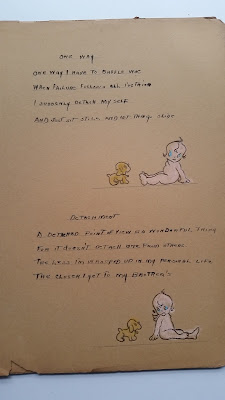 ONE WAY
ONE WAY I HAVE TO BAFFLE WOE
WHEN FAILURE FOLLOWS ALL I'VE TRIED
I SUDDENLY DETACH MY SELF
AND JUST SIT STILL AND LET THINGS SLIDE
DETACHMENT
A DETACHED POINT OF VIEW IS A WONDERFUL THING
FOR IT DOESN'T DETACH ONE FROM OTHERS
THE LESS I'M WRAPPED UP IN MY PERSONAL LIFE
THE CLOSER I GET TO MY BROTHER'S